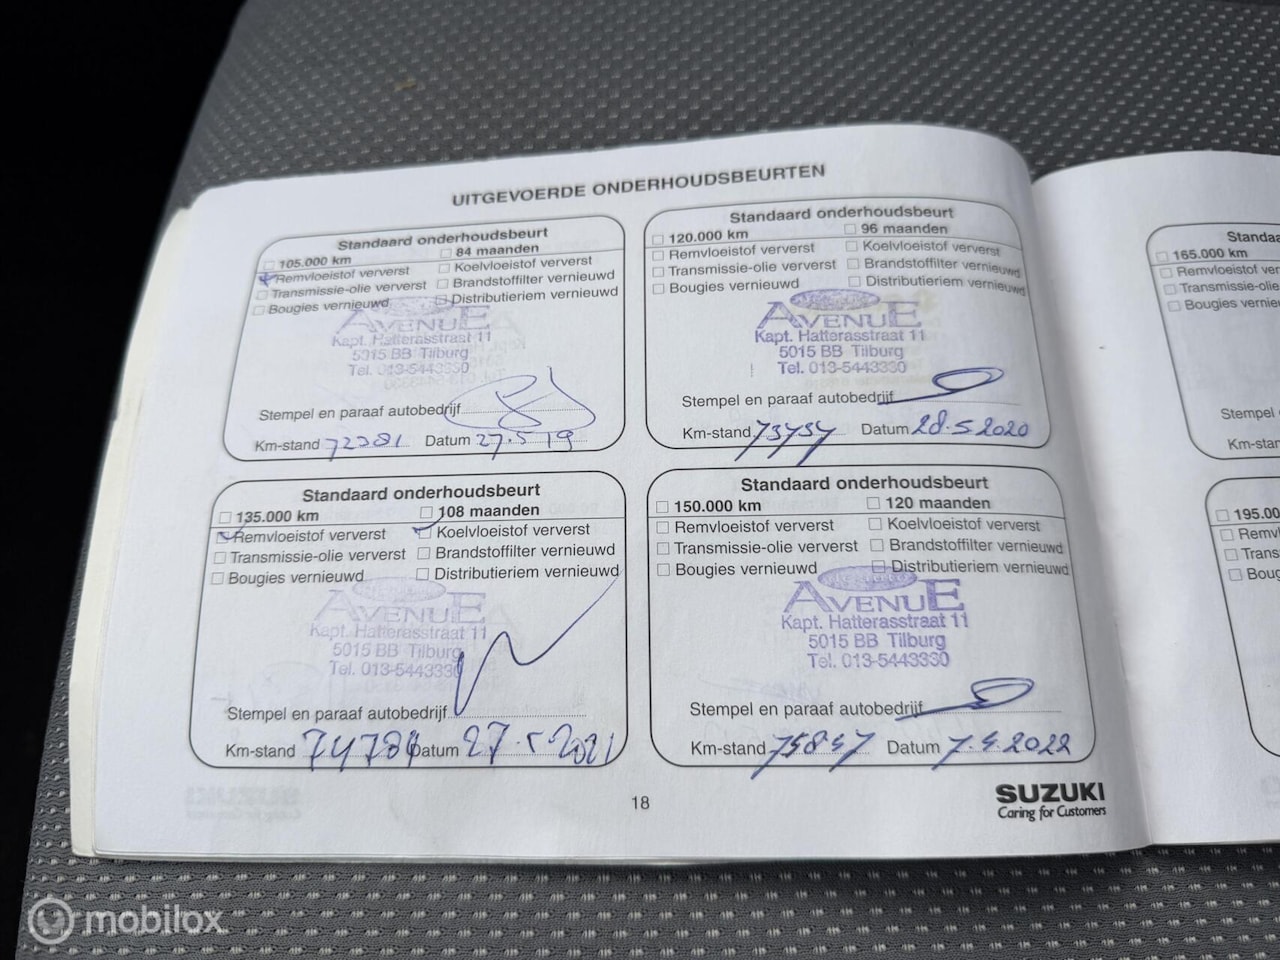 UITGEVOERDE ONDERHOUDSBEURTEN
Standaard onderhoudsbeurt
105.000 km 84 maanden
Remvloeistof ververst Koelvloeistof ververst
Transmissie-olie ververst Brandstoffilter vernieuwd
Bougies vernieuwd Distributieriem vernieuwd
AVENUE
Kapt. Hatterasstraat 11
5015 BB Tilburg
Tel. 013-5443330
Stempel en paraaf autobedrijf
Km-stand 72281 Datum 27.5.19
Standaard onderhoudsbeurt
120.000 km 96 maanden
Remvloeistof ververst Koelvloeistof ververst
Transmissie-olie ververst Brandstoffilter vernieuwd
Bougies vernieuwd Distributieriem vernieuwd
AVENUE
Kapt. Hatterasstraat 11
5015 BB Tilburg
Tel. 013-5443330
Stempel en paraaf autobedrijf
Km-stand Datum 28.5 2020
Standaard onderhoudsbeurt
135.000 km 108 maanden
Remvloeistof ververst Koelvloeistof ververst
Transmissie-olie ververst Brandstoffilter vernieuwd
Bougies vernieuwd Distributieriem vernieuwd
AVENUE
Kapt. Hatterasstraat 11
5015 BB Tilburg
Tel. 013-5443330
Stempel en paraaf autobedrijf
Km-stand Datum 27.5 2021
Standaard onderhoudsbeurt
150.000 km 120 maanden
Remvloeistof ververst Koelvloeistof ververst
Transmissie-olie ververst Brandstoffilter vernieuwd
Bougies vernieuwd Distributieriem vernieuwd
AVENUE
Kapt. Hatterasstraat 11
5015 BB Tilburg
Tel. 013-5443330
Stempel en paraaf autobedrijf
Km-stand 75847 Datum 2022
18
SUZUKI
Caring for Customers
Standaa
165.000 km
Remvloeistof ver
Transmissie-olie
Bougies vernieu
Stempel
Km-stan
195.00
Remv
Trans
Boug
mobilox